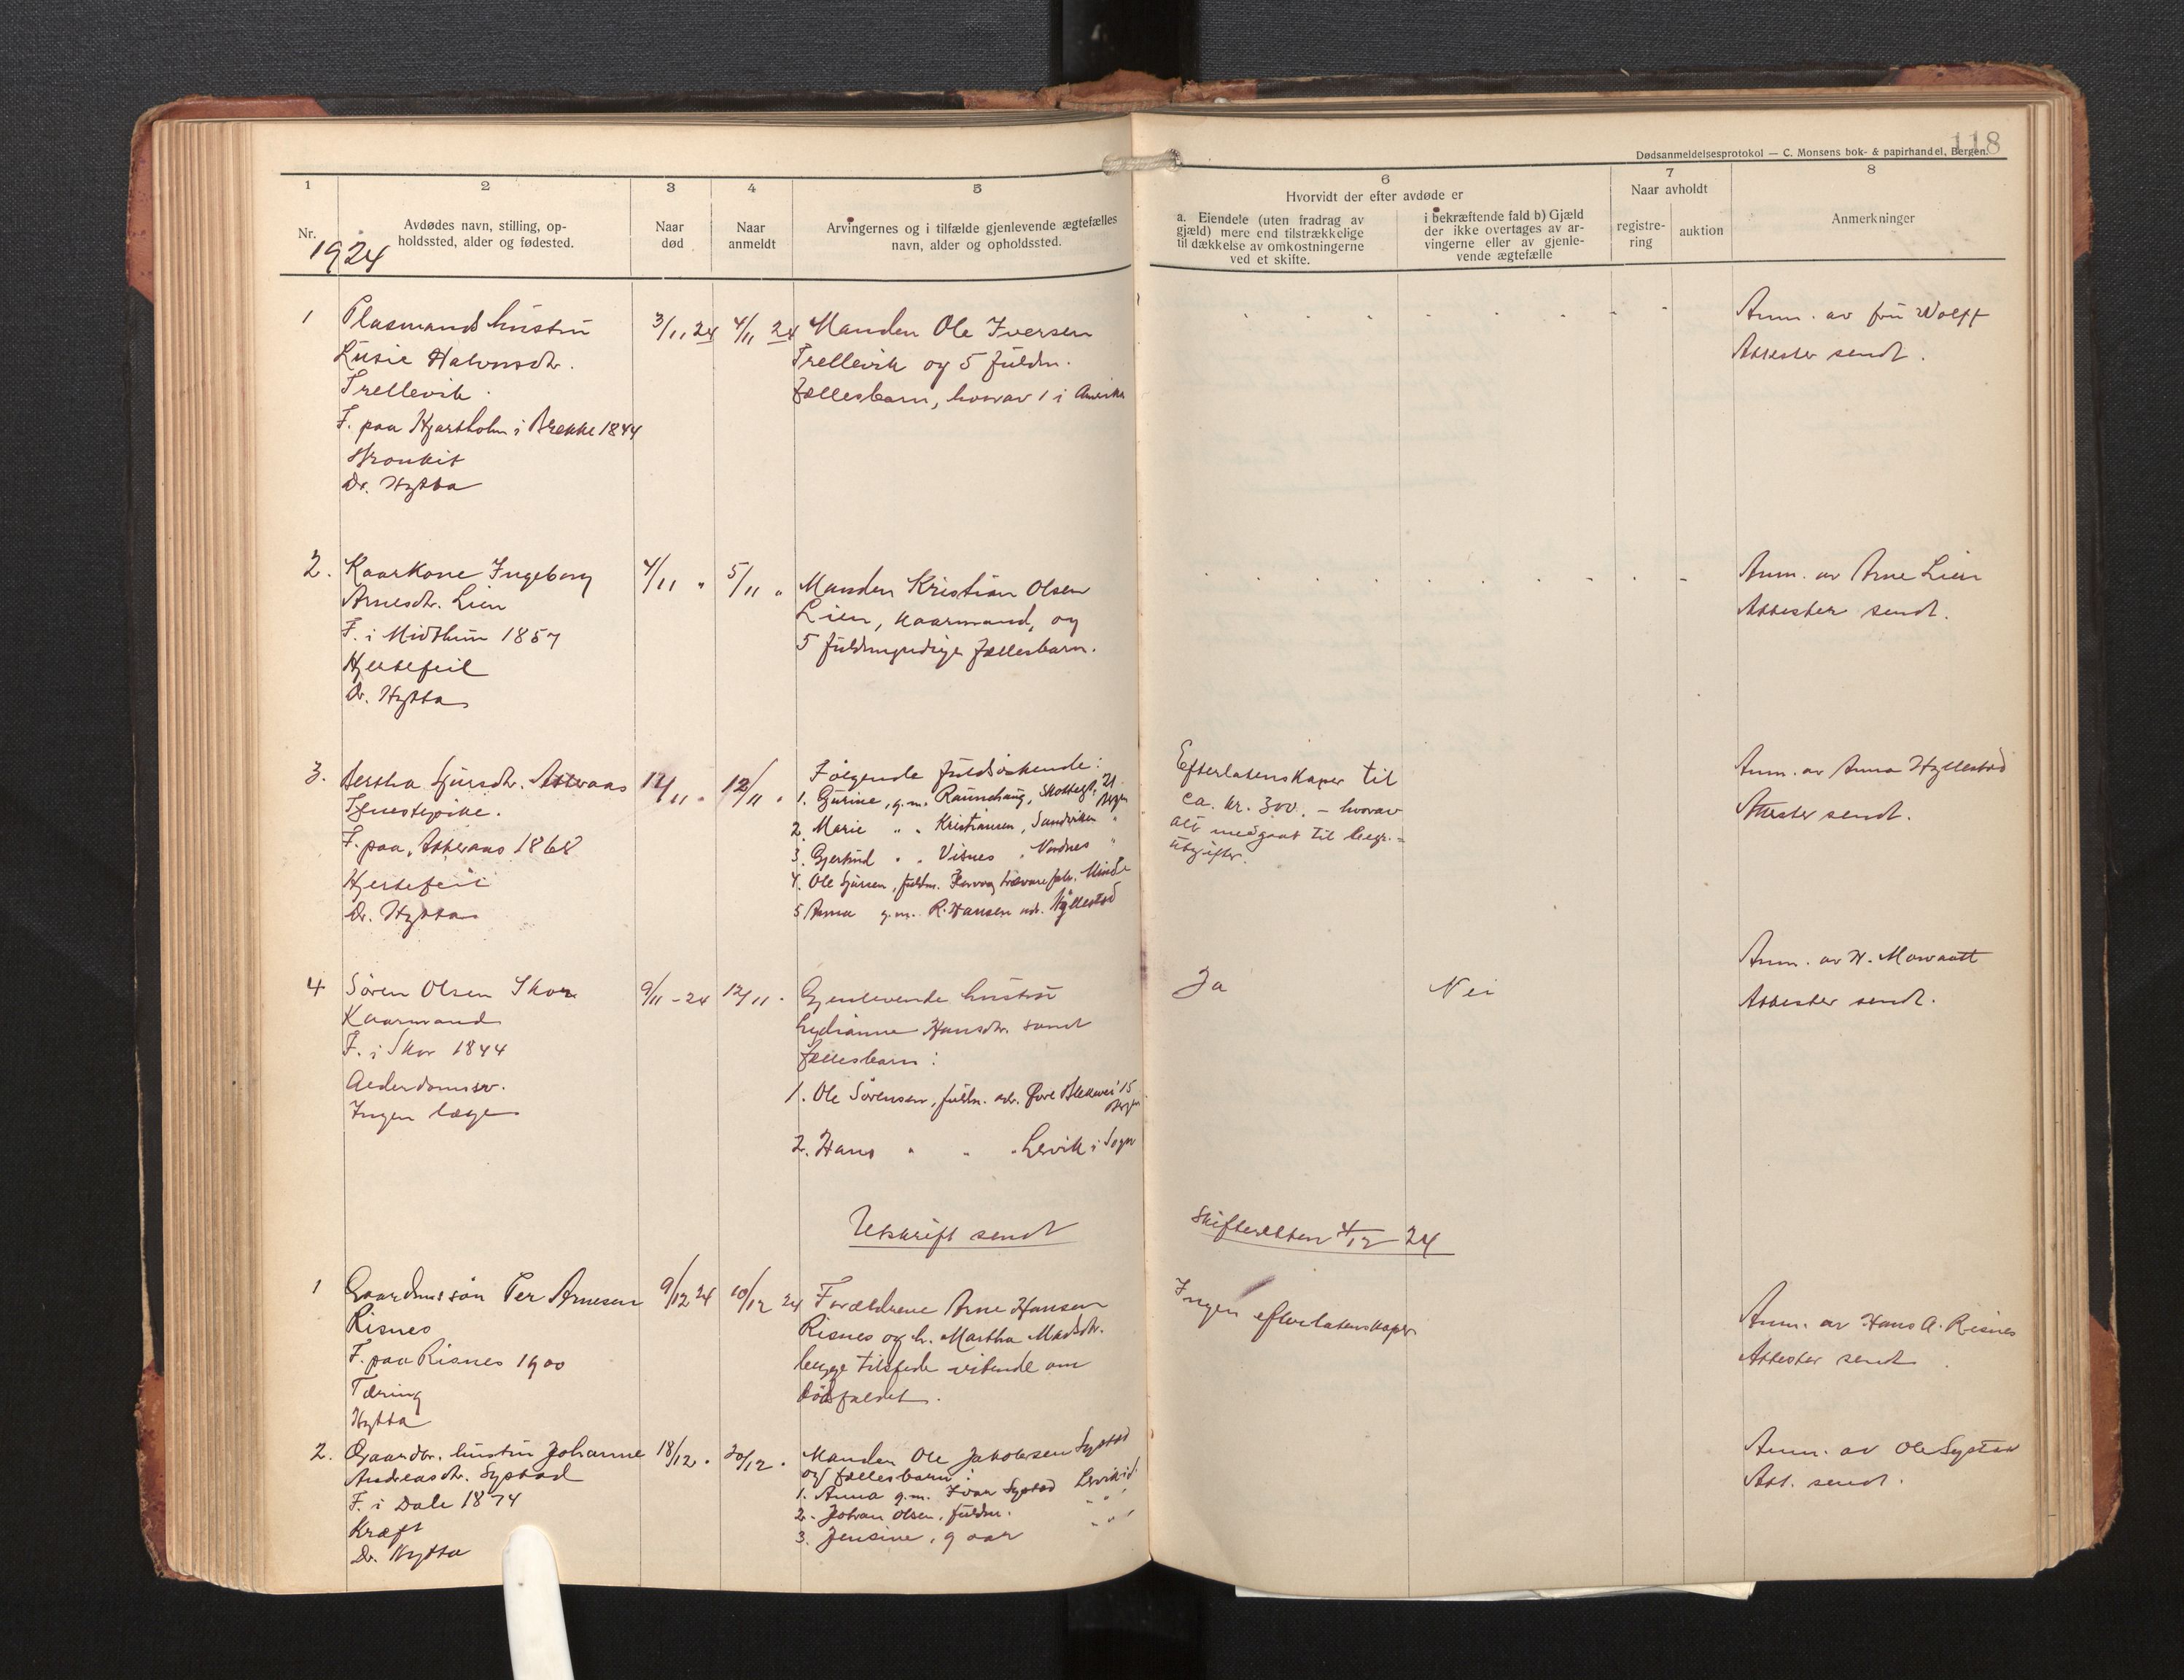 118
Dødsanmeldelsesprotokol — C. Monsens bok- & papirhandel, Bergen.
1 2 3 4 5 6 7 8
Nr.
Avdødes navn, stilling, op-
holdssted, alder og fødested.
Naar
død
Naar
anmeldt
Arvingernes og i tilfælde gjenlevende ægtefælles
navn, alder og opholdssted.
Hvorvidt der efter avdøde er
a. Eiendele (uten fradrag av
gjæld) mere end tilstrækkelige
til dækkelse av omkostningerne
ved et skifte.
i bekræftende fald b) Gjæld
der ikke overtages av ar-
vingerne eller av gjenle-
vende ægtefælle
Naar avholdt
registre-
ring
auktion
Anmerkninger
1924
1
Plasmands hustru
Lusie Halvorsdtr.
Trellevik.
F. paa Hjartholm i Brekke 1844
Bronkit
Dr. Hytta
3/11 24
4/11 24
Manden Ole Iversen
Trellevik og 5 fuldm.
fællesbarn, hvorav 1 i Amerika
Anm. av fru Wolff
Attester sendt.
2.
Kaarkone Ingeborg
Arnesdtr. Lien
F. i Midthun 1857
Hjertefeil
Dr. Hytta
4/11 "
5/11 "
Manden Kristian Olsen
Lien, kaarmand, og
5 fuldmyndige fællesbarn.
Anm. av Arne Lien
Attester sendt.
3.
Bertha Sjursdtr. Atteraas
Tjenestepike.
F. paa Atteraas 1868
Hjertefeil
Dr. Hytta
12/11 "
12/11 "
Følgende fuldsøskende:
1. Gurine, g.m. Raunehaug, Skottegt. 21 Bergen
2. Marie " " Kristiansen, Sandviken "
3. Gjertrud " " Visnes, Nordnes "
4. Ole Sjursen, fuldm. trævarefabr. Minde
5 Anna g.m. R. Hansen adr. Hyllestad
Efterlatenskaper til
ca. kr. 300. – hvorav
alt medgaat til begr.=
utgifter.
Anm. av Anna Hyllestad
Attester sendt.
4
Sören Olsen Skor
Kaarmand
F. i Skor 1844
Alderdomssv.
Ingen læge
9/11 - 24
12/11 "
Gjenlevende hustru
Lydianne Hansdtr. samt
fællesbarn:
1. Ole Sörensen, fuldm. adr. Øvre Blekevei 15 Bergen
2. Hans " " " Lervik i Sogn
Ja
Nei
Anm. av H. Mowatt
Attester sendt.
Utskrift sendt
Skifteretten 4/12 24
1
Gaardmss ön Per Arnesen
Risnes
F. paa Risnes 1900
Tæring
Hytta
9/12 24
10/12 24
Forældrene Arne Hansen
Risnes og h. Martha Madsdtr.
begge tilstede vitende om
dödsfaldet.
Ingen efterlatenskaper
Anm. av Hans A. Risnes
Attester sendt
2.
Gaardbr. hustru Johanne
Andreasdtr. Systad
F. i Dale 1874
Kræft
Dr. Hytta
18/12 "
20/12 "
Manden Ole Jakobsen Systad
og fællesbarn:
1. Anna g.m. Ivar Systad Lervik i S.
2. Johan Olsen, fuldm. " " "
3. Jensine, 9 aar " " "
Anm. av Ole Systad
Att. sendt.